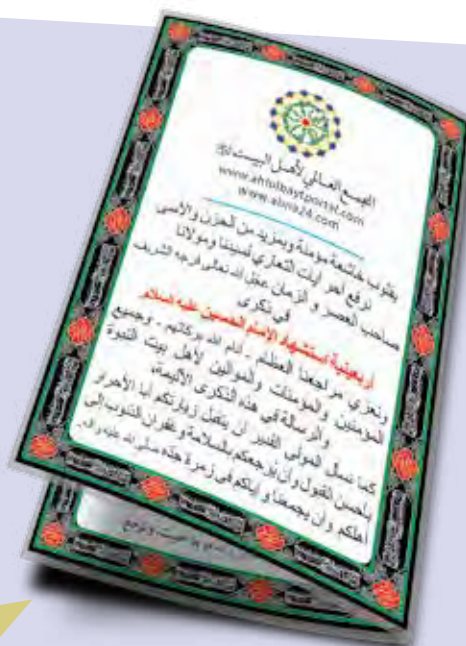 المجمع العالمي لأهل البيت
www.ahlulbaytportal.com
www.abna24.com
بقلوب خاشعة مؤمنة وبمزيد من الحزن والأسى
نرفع أحر آيات التعازي لسيدنا ومولانا
صاحب العصر و الزمان عجل الله تعالى فرجه الشريف
في ذكرى
أربعينية استشهاد الإمام الحسين عليه السلام
ونعزي مراجعنا العظام - أدام الله بركاتهم - وجميع
المؤمنين والمؤمنات والموالين لأهل بيت النبوة
والرسالة في هذه الذكرى الأليمة،
كما نسأل المولى القدير أن يتقبل زيارتكم أيها الأحرار
بأحسن القبول وأن يرجعكم بالسلامة وغفران الذنوب إلى
أهلكم وأن يجمعنا و إياكم في زمرة جده